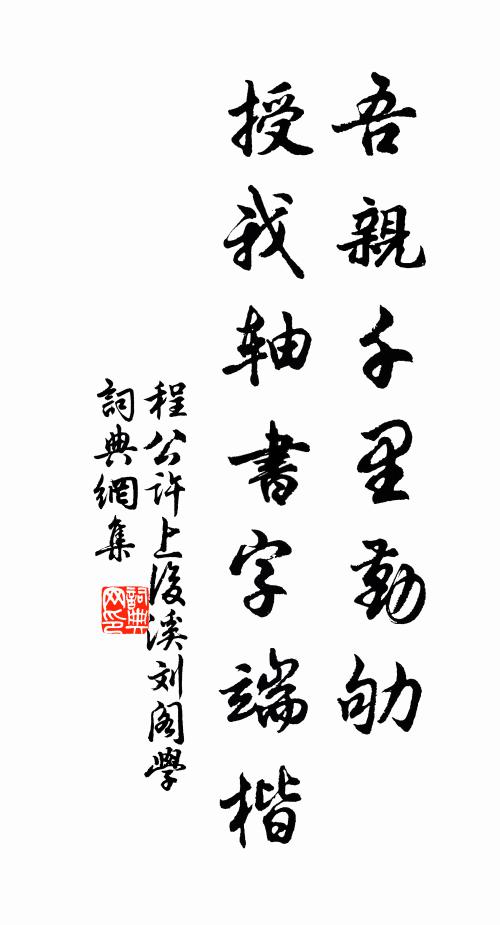 吾親千里勤劬
授我轴書字端楷
程公许上後溪刘阁學
詞典網集
詞典网印